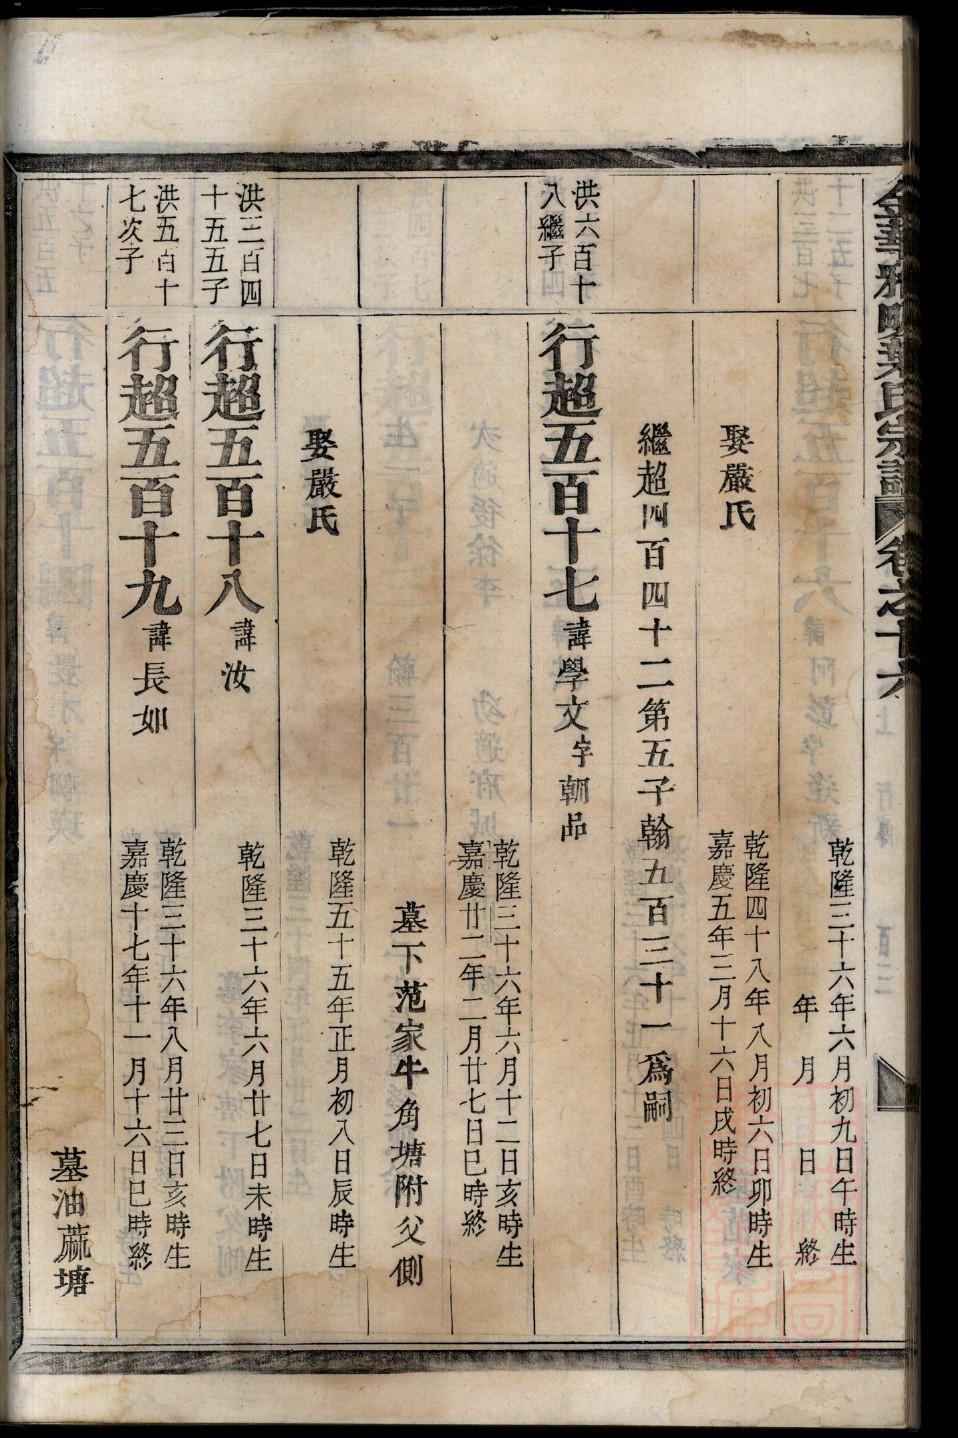 乾隆三十六年六月初九日午時生
年　月　日　終
娶嚴氏
乾隆四十八年八月初六日卯時生
嘉慶五年三月十六日戌時終
繼超四百四十二第五子翰九百三十一爲嗣
洪六百十
八繼子
行超五百十七 諱學文 字朝品
乾隆三十六年六月十二日亥時生
嘉慶廿二年二月廿七日巳時終
墓下范家牛角塘附父側
娶嚴氏
乾隆五十五年正月初八日辰時生
洪三百四
十五五子
行超五百十八 諱汝
乾隆三十六年六月廿七日未時生
洪五百十
七次子
行超五百十九 諱長如
乾隆三十六年八月廿三日亥時生
嘉慶十七年十一月十六日巳時終
墓油蔴塘